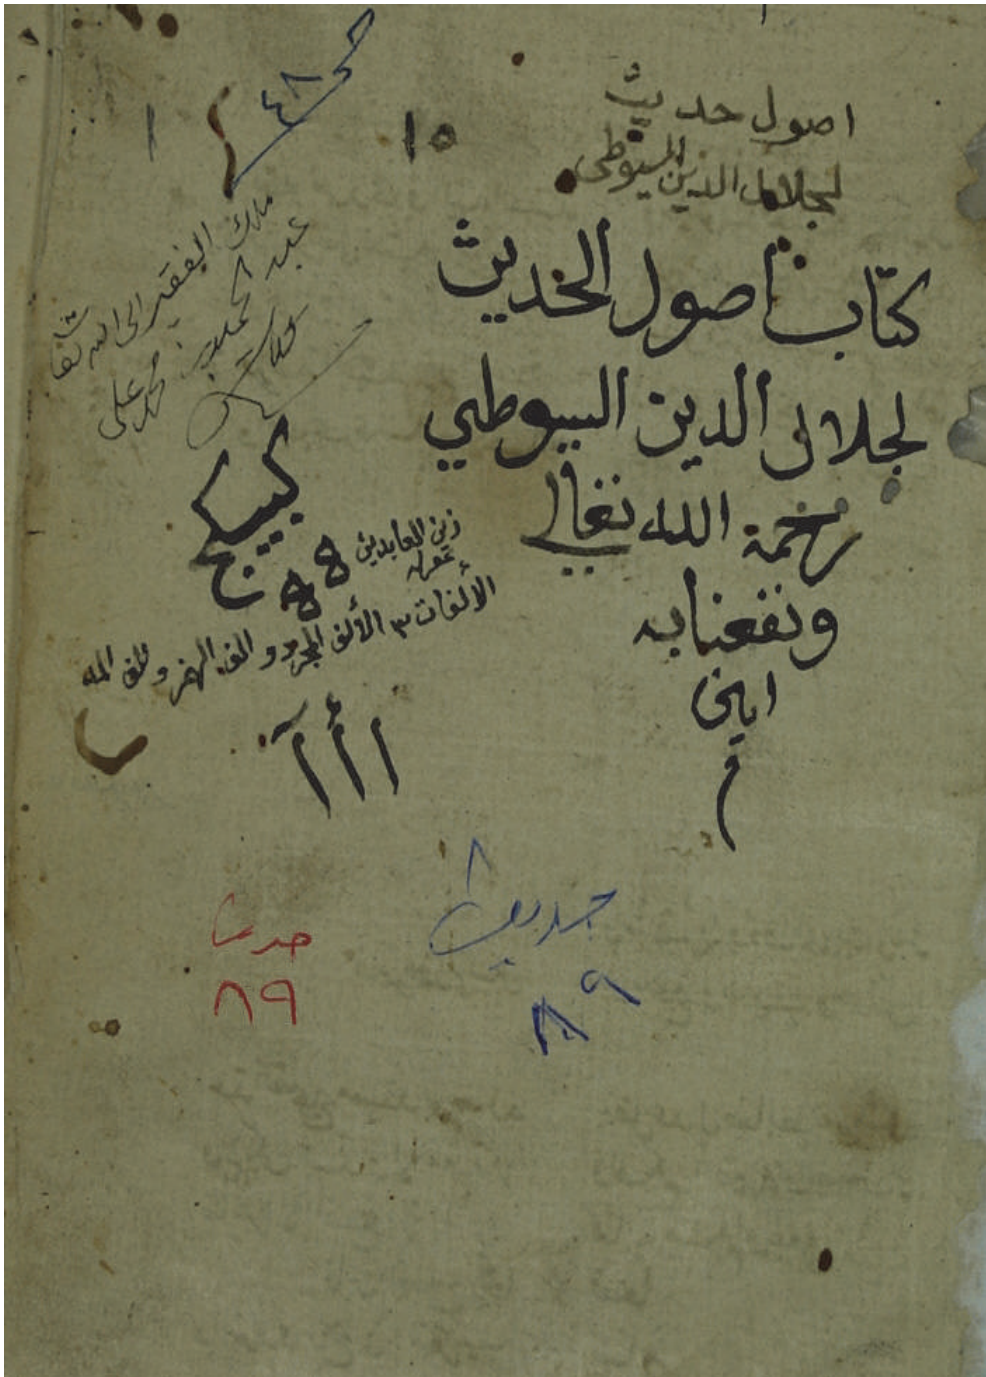 اصول حديث
لجلال الدين السيوطي
كتاب اصول الحديث
لجلال الدين السيوطي
رحمة الله تعالى
ونفعنا به
امين
م
٤٨
١
١٥
ملك الفقير الى الله تعا
عبد الحميد بن محمد علي
كبيكج
زين العابدين
الألفات ٣ الألف المجرد و الف الهمز و الف المد
ا أ آ
حديث
٨٩
حديث
٨٩